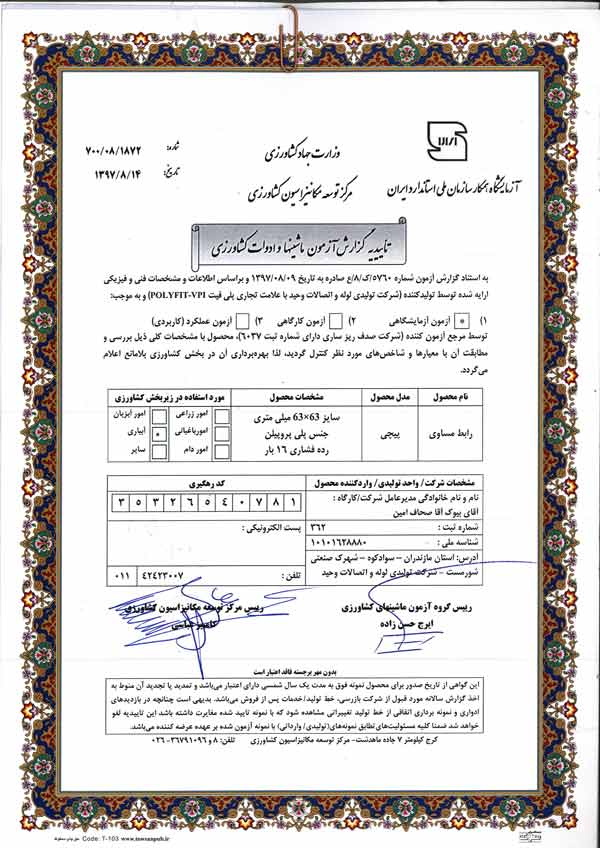 وزارت جهاد کشاورزی
شماره: ۷۰۰/۰۸/۱۸۷۲
آزمایشگاه همکار سازمان ملی استاندارد ایران
مرکز توسعه مکانیزاسیون کشاورزی
تاریخ: ۱۳۹۷/۸/۱۴
تاییدیه گزارش آزمون ماشینها و ادوات کشاورزی
به استناد گزارش آزمون شماره ۵۷۶۰/ک/۸/ع صادره به تاریخ ۱۳۹۷/۰۸/۰۹ و براساس اطلاعات و مشخصات فنی و فیزیکی
ارایه شده توسط تولیدکننده (شرکت تولیدی لوله و اتصالات وحید با علامت تجاری پلی فیت POLYFIT-VPI) و به موجب:
۱) آزمون آزمایشگاهی * ۲) آزمون کارگاهی ۳) آزمون عملکرد (کاربردی)
توسط مرجع آزمون کننده (شرکت صدف ریز ساری دارای شماره ثبت ۶۰۳۷)، محصول با مشخصات کلی ذیل بررسی و
مطابقت آن با معیارها و شاخص‌های مورد نظر کنترل گردید، لذا بهره‌برداری آن در بخش کشاورزی بلامانع اعلام
می‌گردد.
نام محصول مدل محصول مشخصات محصول مورد استفاده در زیربخش کشاورزی
رابط مساوی پیچی سایز 63×63 میلی متری
جنس پلی پروپیلن
رده فشاری ۱۶ بار
امور زراعی امور آبزیان
امورباغبانی آبیاری *
امور دام سایر
مشخصات شرکت/ واحد تولیدی/ واردکننده محصول کد رهگیری
نام و نام خانوادگی مدیرعامل شرکت/کارگاه :
آقای بیوک آقا صحاف امین
۳ ۵ ۳ ۲ ۶ ۵ ۴ ۰ ۷ ۸ ۱
شماره ثبت : ۳۶۲
پست الکترونیکی :
شناسه ملی : ۱۰۱۰۱۶۲۸۸۸۰
آدرس: استان مازندران – سوادکوه – شهرک صنعتی
شورمست – شرکت تولیدی لوله و اتصالات وحید
تلفن : ۴۲۴۲۳۰۰۷ ۰۱۱
رییس گروه آزمون ماشینهای کشاورزی
ایرج حسن زاده
رییس مرکز توسعه مکانیزاسیون کشاورزی
کامبیز عباسی
بدون مهر برجسته فاقد اعتبار است
این گواهی از تاریخ صدور برای محصول نمونه فوق به مدت یک سال شمسی دارای اعتبار می‌باشد و تمدید یا تجدید آن منوط به
اخذ گزارش سالانه مورد قبول از شرکت بازرسی، خط تولید/خدمات پس از فروش می‌باشد. بدیهی است چنانچه در بازدیدهای
ادواری و نمونه برداری اتفاقی از خط تولید تغییراتی مشاهده شود که با نمونه تایید شده مغایرت داشته باشد این تاییدیه لغو
خواهد شد ضمنا کلیه مسئولیت‌های تطابق نمونه‌های (تولیدی/ وارداتی) با نمونه آزمون شده بر عهده عرضه کننده می‌باشد.
کرج کیلومتر ۷ جاده ماهدشت- مرکز توسعه مکانیزاسیون کشاورزی تلفن: ۸ و ۳۶۷۹۱۰۹۶-۰۲۶
Code: T-103 www.tawsanpub.ir